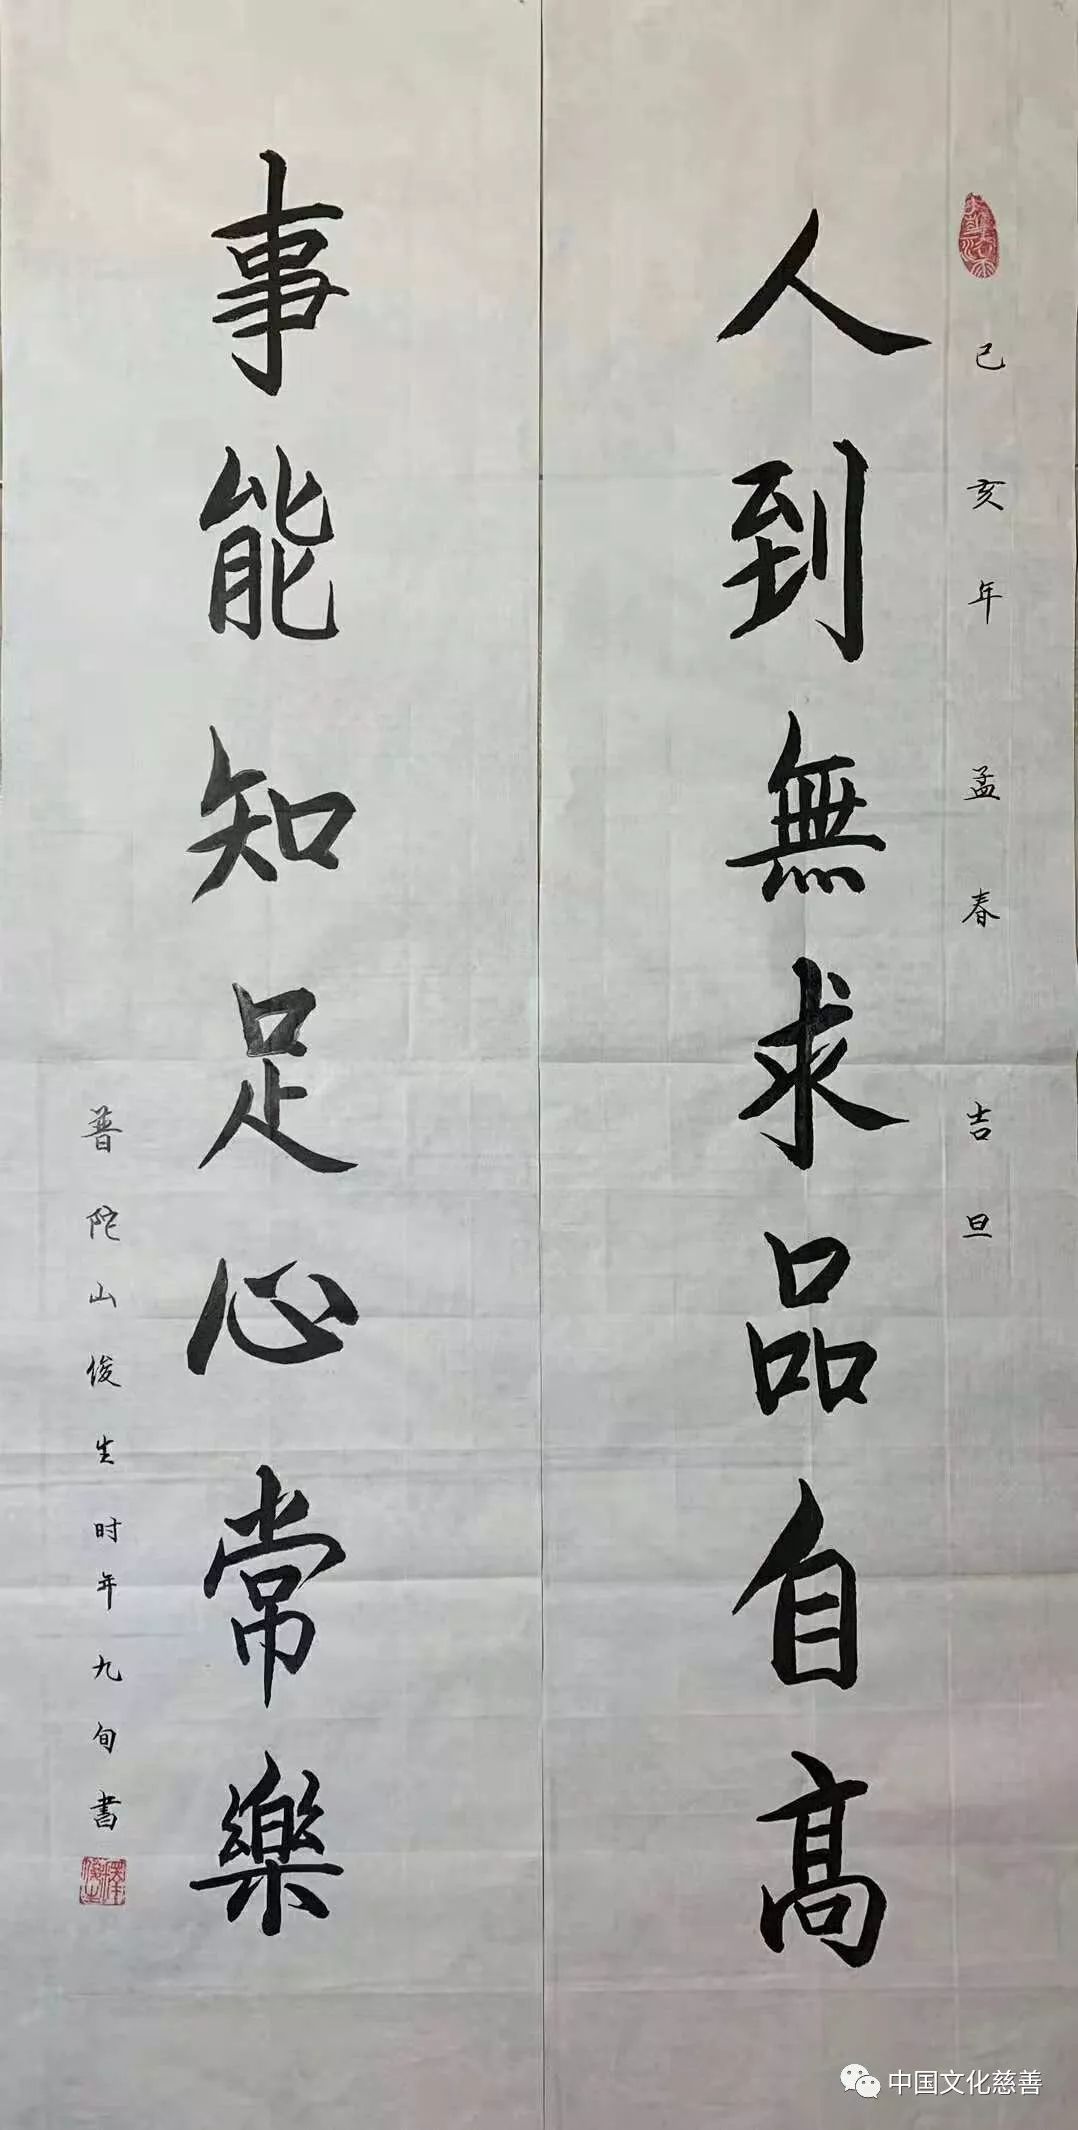 己亥年孟春吉旦
人到無求品自高
事能知足心常樂
普陀山俊生时年九旬書
中国文化慈善